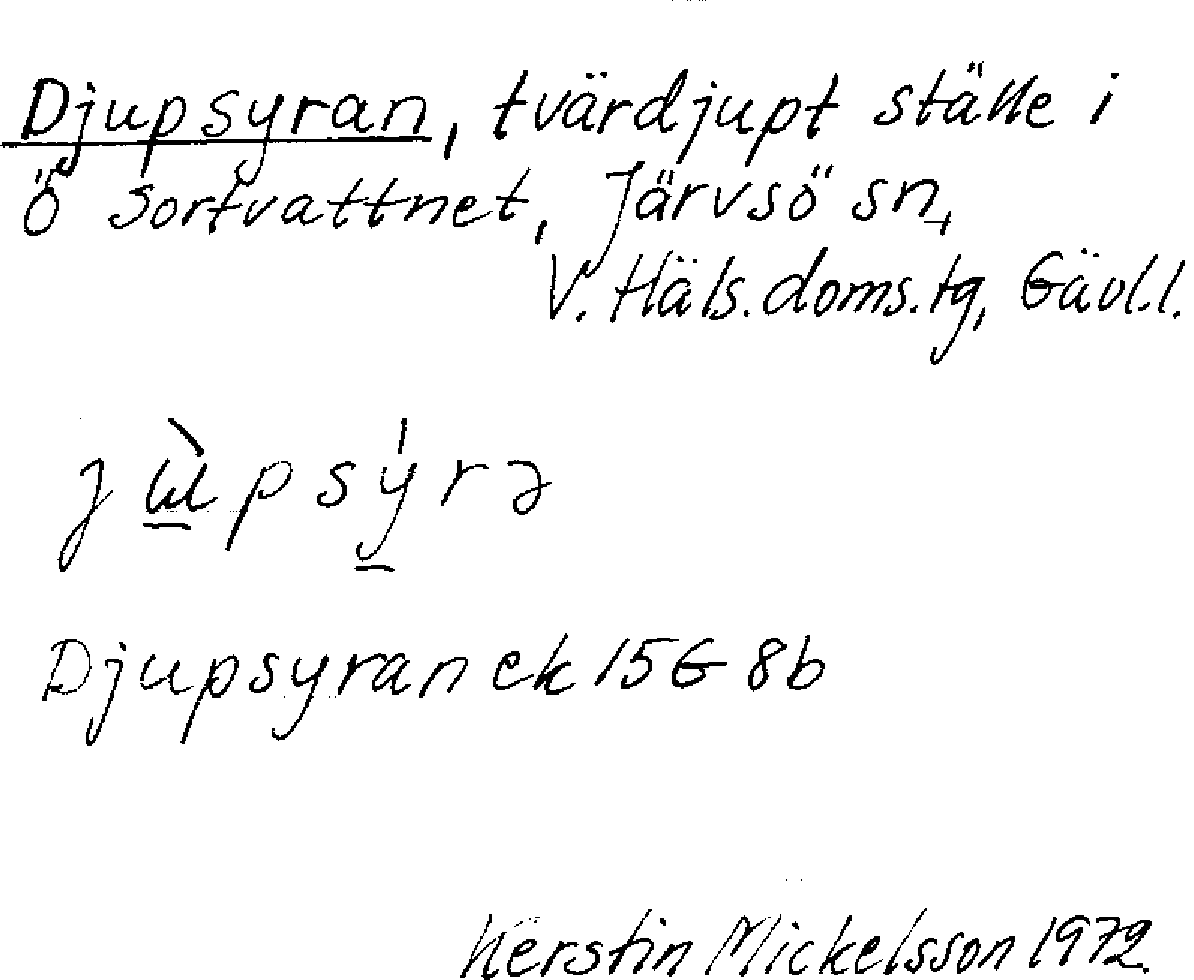 Djupsyran, tvärdjupt ställe i
Ö Sortvattnet, Järvsö sn,
V. Häls. doms. tg, Gävl.l.
jɯ̀psýrə
Djupsyran ek 15G 8b
Kerstin Mickelsson 1972.